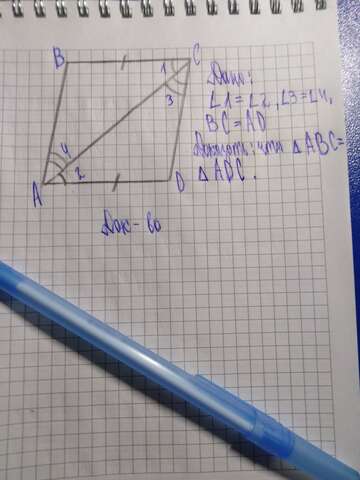 B
C
1
3
4
2
A
D
Дано:
∠1=∠2, ∠3=∠4,
BC=AD
Доказать: что △ABC=
△ADC.
Док-во